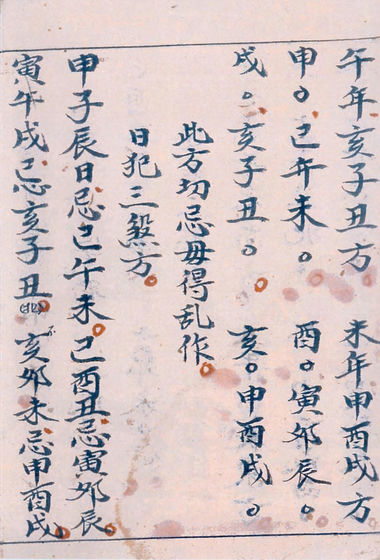 午年亥子丑方 未年申酉戌方
申〇巳午未〇 酉〇寅卯辰〇
戌〇亥子丑〇 亥〇申酉戌〇
此方切忌毋得乱作。
日犯三煞方。
申子辰日忌巳午未。巳酉丑忌寅卯辰。
寅午戌日忌亥子丑。亥卯未忌申酉戌。